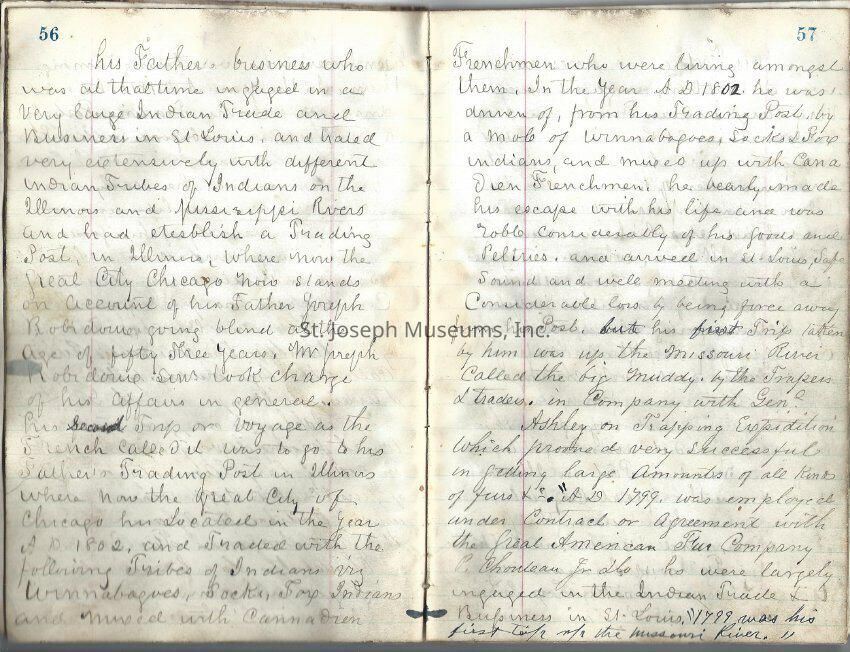 56
his Father business who
was at that time ingaged in a
very large Indian Trade and
Business in St Louis. and traded
very extensively with different
indian Tribes of Indians on the
Illinois and Mississippi Rivers
and had etestblish a Trading
Post, in Illinois, where now the
great City Chicago now stands
on account of his Father Joseph
Robidoux going blind at the
age of fifty three years. Mr Joseph
Robidoux Sens took charge
of his affairs in general.
his Second Trip or Voyage as the
French called it was to go to his
Father's Trading Post in Illinois
where now the great City of
Chicago his Located in the year
A D 1802, and Traded with the
following Tribes of Indians viz
Winnabagoes, Socks, Fox Indians
and mixed with Cannadien
57
Frenchmen who were living amongst
them. In the year A D 1802 he was
driven of, from his Trading Post, by
a mob of Winnabagoes, Socks & Fox
indians, and mixed up with Cana
Dien Frenchmen. he bearly made
his escape with his life and was
roble considerably of his goods and
Peltries. and arrived in St Louis, Safe
Sound and well meeting with a
Considerable loss by being force away
from his Post. but his first Trip taken
by him was up the Missouri River
Called the big Muddy. by the Trapers
& traders. in Company with Genl
Ashley on Trapping Expidition
which prooved very Successful
in getting large Amounts of all kinds
of furs &c. "A D 1799. was employed
under Contract or Agreement with
the great American Fur Company
P. Chouteau Jr who were largely
ingaged in the Indian Trade &
Bussiness in St. Louis. "1799 was his
first trip up the Missouri River. "
St. Joseph Museums, Inc.